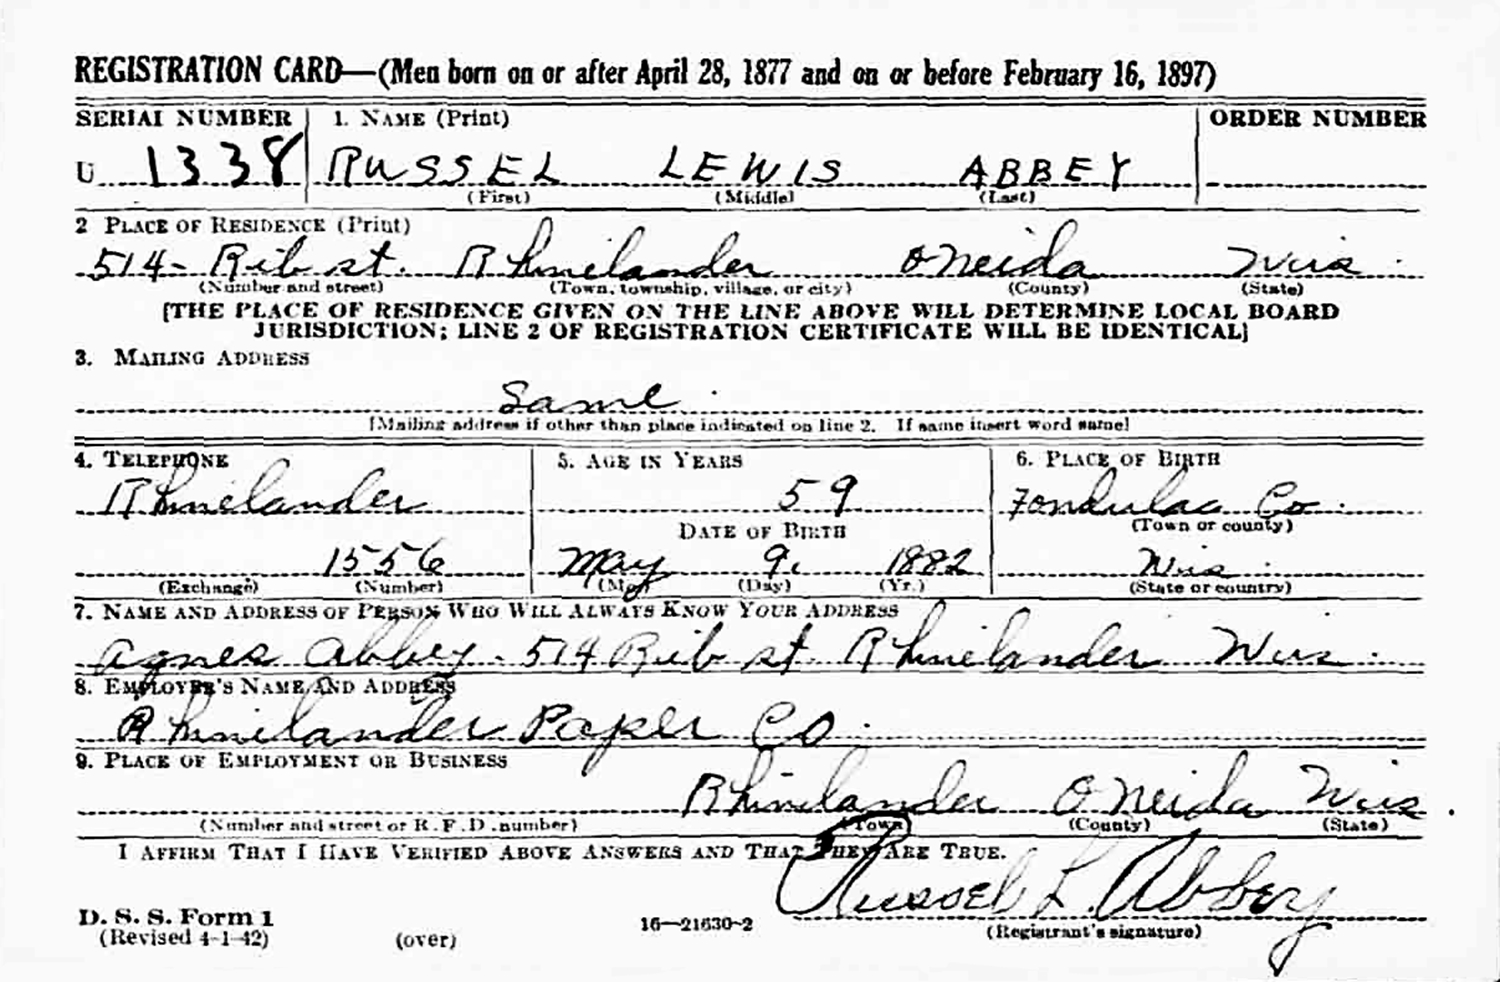 REGISTRATION CARD—(Men born on or after April 28, 1877 and on or before February 16, 1897)
SERIAL NUMBER 1. NAME (Print) ORDER NUMBER
U 1338 RUSSEL LEWIS ABBEY
(First) (Middle) (Last)
2 PLACE OF RESIDENCE (Print)
514- Rib st. Rhinelander Oneida Wis.
(Number and street) (Town, township, village, or city) (County) (State)
[THE PLACE OF RESIDENCE GIVEN ON THE LINE ABOVE WILL DETERMINE LOCAL BOARD
JURISDICTION; LINE 2 OF REGISTRATION CERTIFICATE WILL BE IDENTICAL]
3. MAILING ADDRESS
Same.
[Mailing address if other than place indicated on line 2. If same insert word same]
4. TELEPHONE 5. AGE IN YEARS 6. PLACE OF BIRTH
Rhinelander 59 Fondulac Co.
DATE OF BIRTH (Town or county)
1556 May 9. 1882 Wis.
(Exchange) (Number) (Mo.) (Day) (Yr.) (State or country)
7. NAME AND ADDRESS OF PERSON WHO WILL ALWAYS KNOW YOUR ADDRESS
Agnes Abbey - 514 Rib st. Rhinelander Wis.
8. EMPLOYER'S NAME AND ADDRESS
Rhinelander Paper Co.
9. PLACE OF EMPLOYMENT OR BUSINESS
Rhinelander Oneida Wis.
(Number and street or R. F. D. number) (Town) (County) (State)
I AFFIRM THAT I HAVE VERIFIED ABOVE ANSWERS AND THAT THEY ARE TRUE.
Russel L. Abbey
D. S. S. Form 1
(Revised 4-1-42) (over) 16—21630-2 (Registrant's signature)